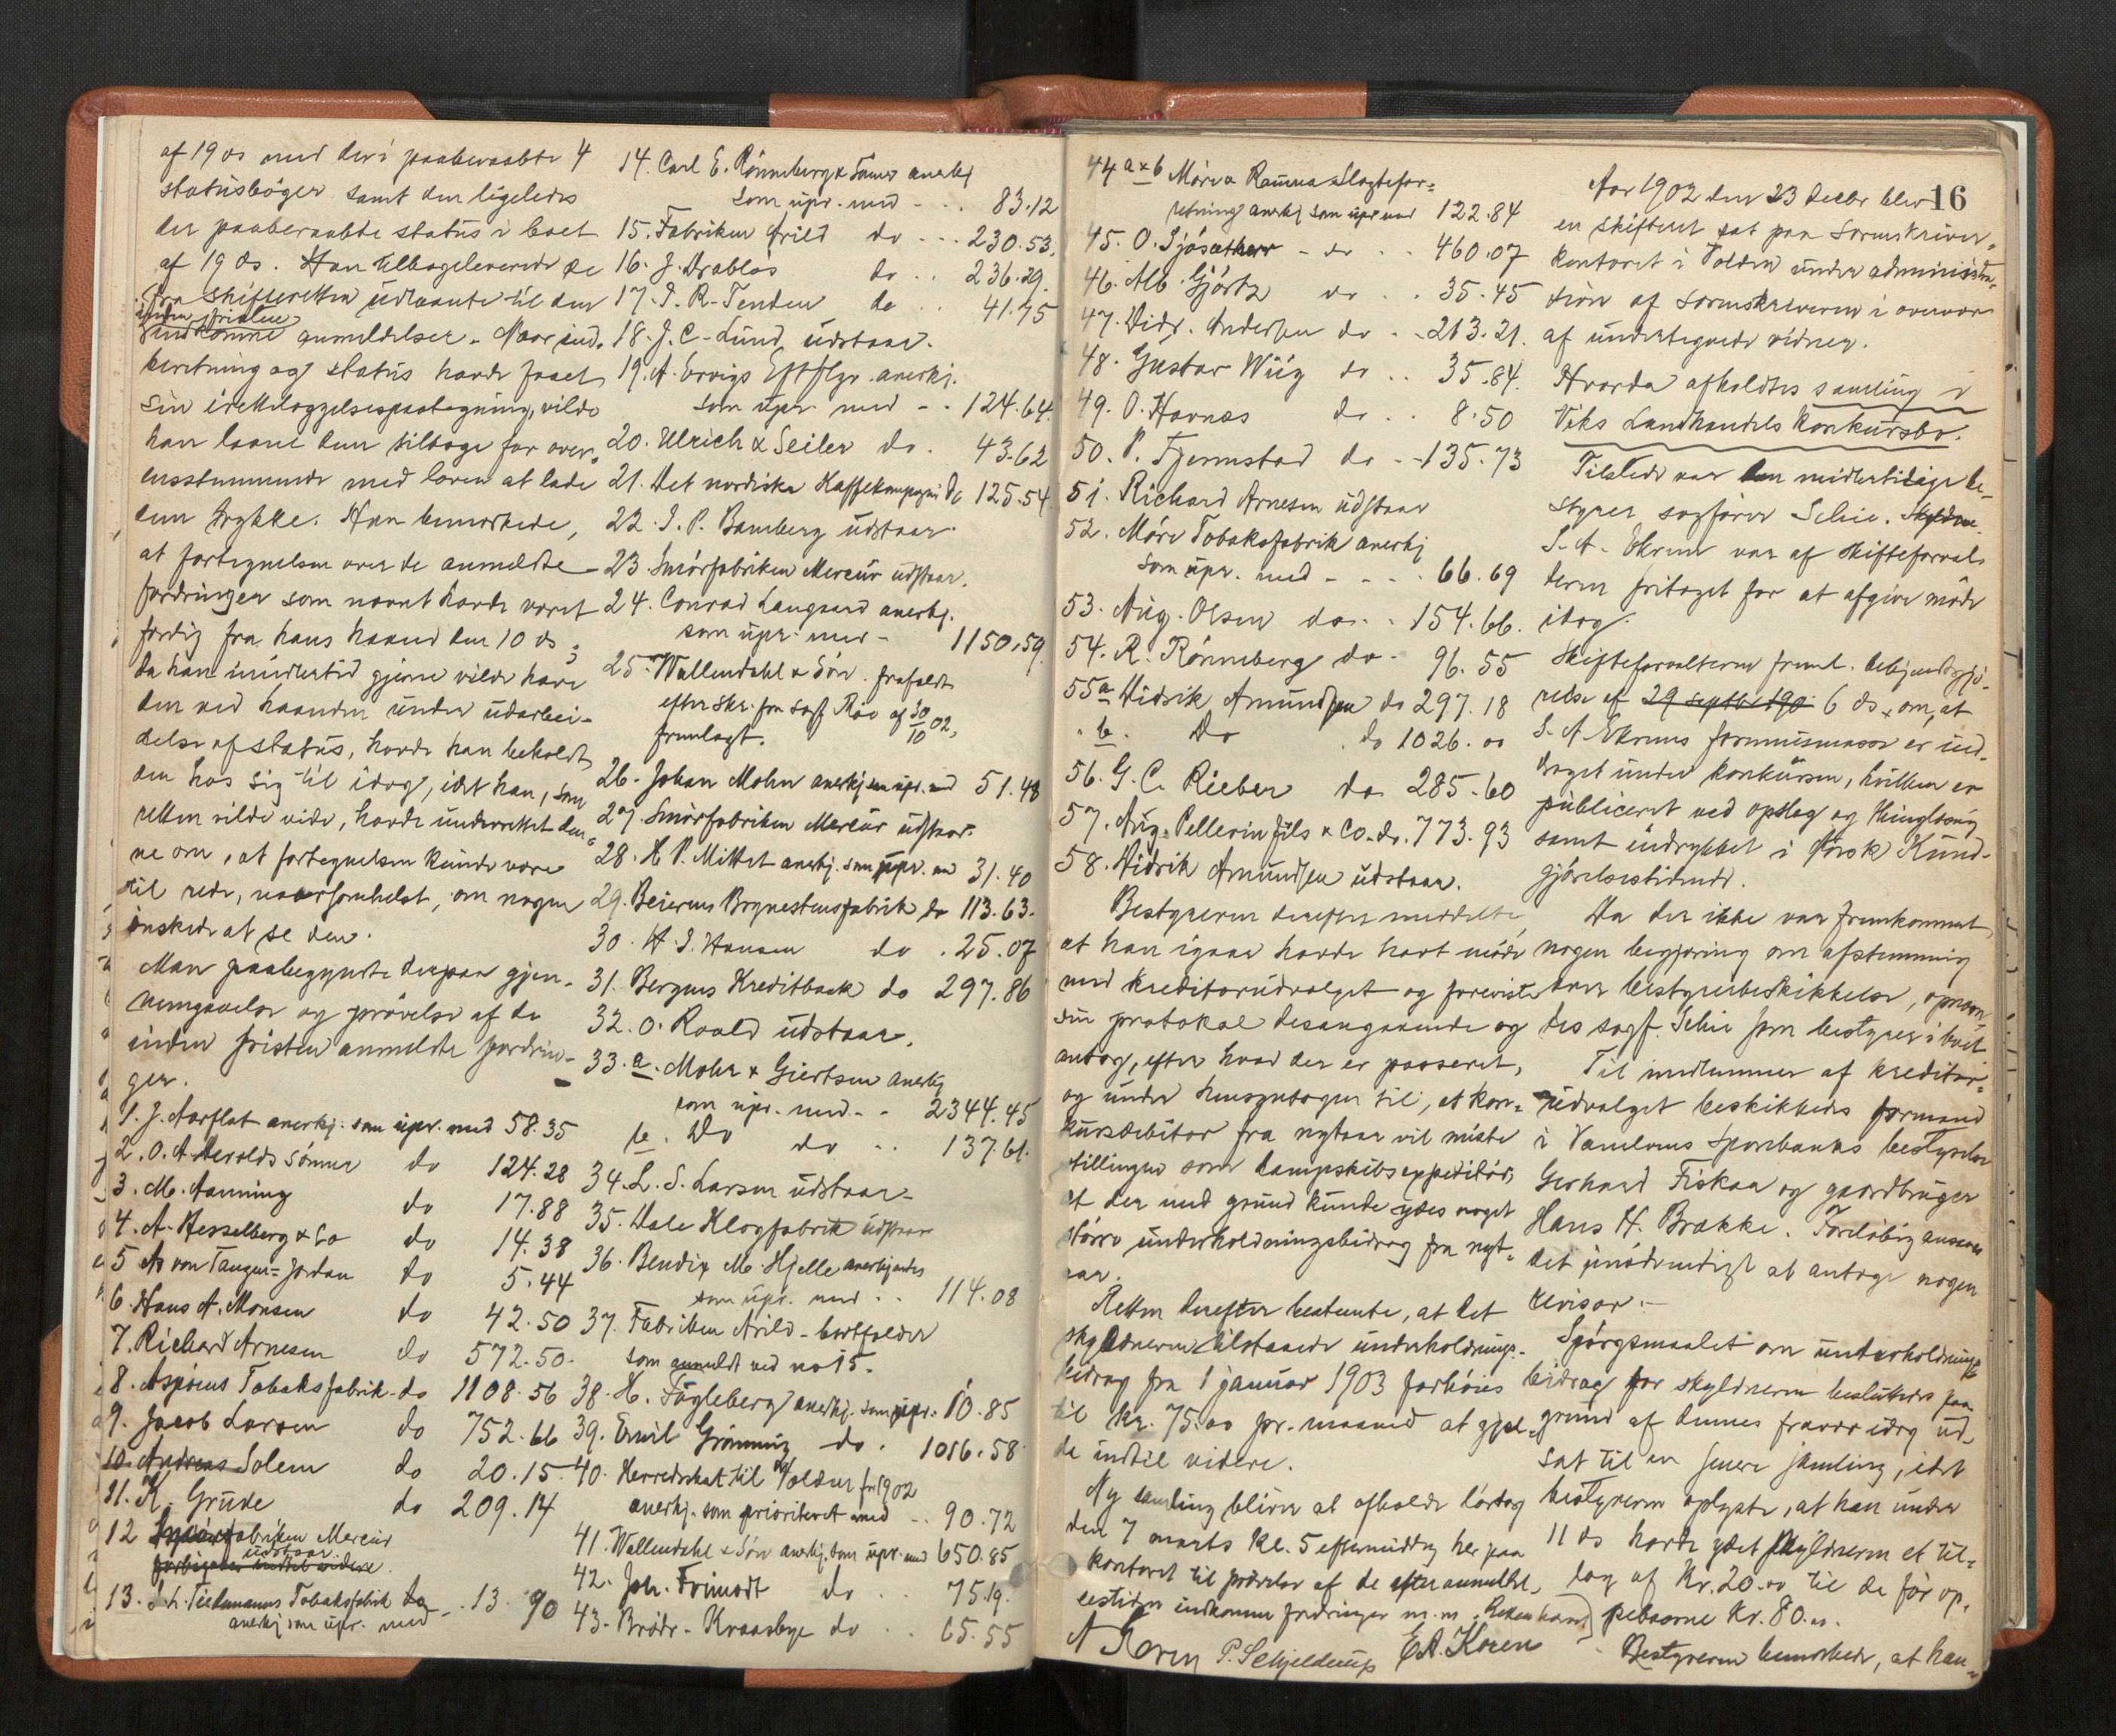 af 19 ds med der i paaberaabte 4
statusbøger samt den ligeledes
der paaberaabte status i boet
af 19 ds. Han tilbageleverede de
fra skifteretten udlaante til den
inden fristen
indkomne anmeldelser. Naar ind-
beretning og status havde faaet
sin irettelæggelsespaategning, vilde
han laane dem tilbage for over-
ensstemmende med loven at lade
dem trykke. Han bemærkede,
at fortegnelsen over de anmeldte
fordringer som nævnt havde været
færdig fra hans haand den 10 ds;
da han imidlertid gjerne vilde have
den ved haanden under udarbei-
delse af status, havde han beholdt
den hos sig til idag, idet han, som
retten vilde vide, havde underrettet den-
ne om, at fortegnelsen kunde være
til rede, naarsomhelst, om nogen
ønskede at se den.
Man paabegyndte derpaa gjen-
nemgaaelse og prøvelse af de
inden fristen anmeldte fordrin-
ger.
1. J. Aarflot anerkj. som upr. med 58.35
2. O. A. Devolds Sønner do 124.28
3. M. Aanning do 17.88
4. A. Hesselberg & Co do 14.38
5 As von Tangen-Jordan do 5.44
6. Hans A. Monsen do 42.50
7. Richard Arnesen do 572.50.
8. Asphoug Tobaksfabrik do 1108.56
9. Jacob Larsen do 752.66
10. Andreas Solem do 20.15
11. K. Grude do 209.14
12 Smørfabriken Mercur
udstaar
forbigaaes indtil videre.
13. J. L. Tiedemanns Tobaksfabrik
anerkj som upr. med 13.90
14. Carl E. Rønneberg & Sønner anerkj
som upr. med - - . 83.12
15. Fabriken Arild do - - . 230.53.
16. J. Drabløs do . . 236.29.
17. I. R. Tenden do . . 41.75
18. J. C. Lund udstaar.
19. A. Ervigs Eftflgr. anerkj.
som upr. med - - . 124.64.
20. Ulrich & Seiler do. 43.62
21. Det nordiske Kaffekompagni do 125.54.
22. I. P. Bamberg udstaar.
23. Smørfabriken Mercur udstaar.
24. Conrad Langaard anerkj.
som upr. med - 1150.59
25. Wallendahl & Søn. frafaldt
efter skr. fra sagf Roo af 30/10 02,
fremlagt.
26. Johan Mohn anerkj som upr. med 51.48
27. Smørfabriken Mercur udstaar.
28. H. P. Mittet anerkj. som upr. med 31.40
29. Beierens Brynestensfabrik do 113.63.
30. H. I. Hansen do . 25.07
31. Bergens Kreditbank do 297.86
32. O. Roald udstaar.
33. a. Mohr & Giertsen anerkj
som upr. med - - 2344.45
b. Do do . . 137.61.
34. L. S. Larsen udstaar.
35. Dale Klogfabrik udstaar
36. Bendix M. Hjelle anerkjendes
som upr. med . . 114.08
37. Fabriken Arild - bortfalder
som anmeldt ved no 15.
38. H. Fugleberg anerkj. som upr. 10.85
39. Emil Grønning do . 1016.58
40. Herredsskat til Volden for 1902
anerkj. som prioriteret med . . 90.72
41. Wallendahl & Søn anerkj. som upr. med 650.85
42. Joh. Frimodt do . . 75.19.
43. Brødr. Kraasbye do . . 65.55
44 a & b Møre & Romsdalslagtefor-
retning anerkj som upr med 122.84
45. O. Sjøsæther - do - . . 460.07
46. Alb. Gjørtz do . . 35.45
47. Didr. Andersen do . . 213.21.
48. Gustav Wiig do . . 35.84.
49. O. Havnæs do . . 8.50
50. P. Fjermstad do - - 135.73
51. Richard Arnesen udstaar
52. Møre Tobaksfabrik anerkj
som upr. med - - - . 66.69
53. Aug. Olsen do . . 154.66.
54. R. Rønneberg do . 96.55
55a. Didrik Amundsen do 297.18
b. Do do 1026.00
56. G. C. Rieber do 285.60
57. Aug. Pellerin fils & Co. do. 773.93
58. Didrik Amundsen udstaar.
Bestyreren derefter meddelte,
at han igaar havde havt møde
med kreditorudvalget og foreviste
sin protokol desangaaende og
antog, efter hvad der er passeret,
og under hensyntagen til, at kon-
kursdebitor fra nytaar vil miste
stillingen som dampskibsexpeditør,
at der med grund kunde ydes noget
større underholdningsbidrag fra nyt-
aar.
Retten derefter bestemte, at det
skyldneren tilstaaede underholdnings-
bidrag fra 1 januar 1903 forhøies
til kr. 75.00 pr. maaned at gjæl-
de indtil videre.
Ny samling bliver at afholde lørdag
den 7 marts kl. 5 eftermiddag her paa
kontoret til prøvelse af de efter anmeldel-
sestiden indkomne fordringer m.m. Retten hævet
A Koren P. Schjelderup E A. Koren
16
Aar 1902 den 23 decbr blev
en skifteret sat paa Sorenskriver-
kontoret i Volden under administra-
tion af sorenskriveren i overvær
af undertegnede vidner.
Hvorda afholdtes samling i
Viks Landhandels Konkursbo.
Tilstede var den midlertidige be-
styrer sagfører Schie. Skyldne
S. A. Ekrem var af skifteforval-
teren fritaget for at afgive møde
idag.
Skifteforvalteren freml. bekjendtgjø-
relse af 29 septbr 190 6 ds, om, at
S. A. Ekrems formuesmasse er ind-
draget under konkursen, hvilken er
publiceret ved opslag og thinglæsning
samt indrykket i Norsk Kund-
gjørelsestidende.
Da der ikke var fremkommet
nogen begjæring om afstemning
over bestyrerbeskikkelse, opnævn-
tes sagf. Schie som bestyrer i boet.
Til medlemmer af kreditor-
udvalget beskikkedes formand
i Vanelvens Sparebanks bestyrelse
Gerhard Fiskaa og gaardbruger
Hans H. Brække. Foreløbig ansaaes
det unødvendigt at antage nogen
revisor.-
Spørgsmaalet om underholdnings-
bidrag for skyldneren besluttedes paa
grund af dennes fravær idag ud-
sat til en senere samling, idet
bestyreren oplyste, at han under
11 ds havde ydet skyldneren et til-
læg af Kr. 20.00 til de før op-
pebaarne kr. 80.00.
Bestyreren bemærkede, at han